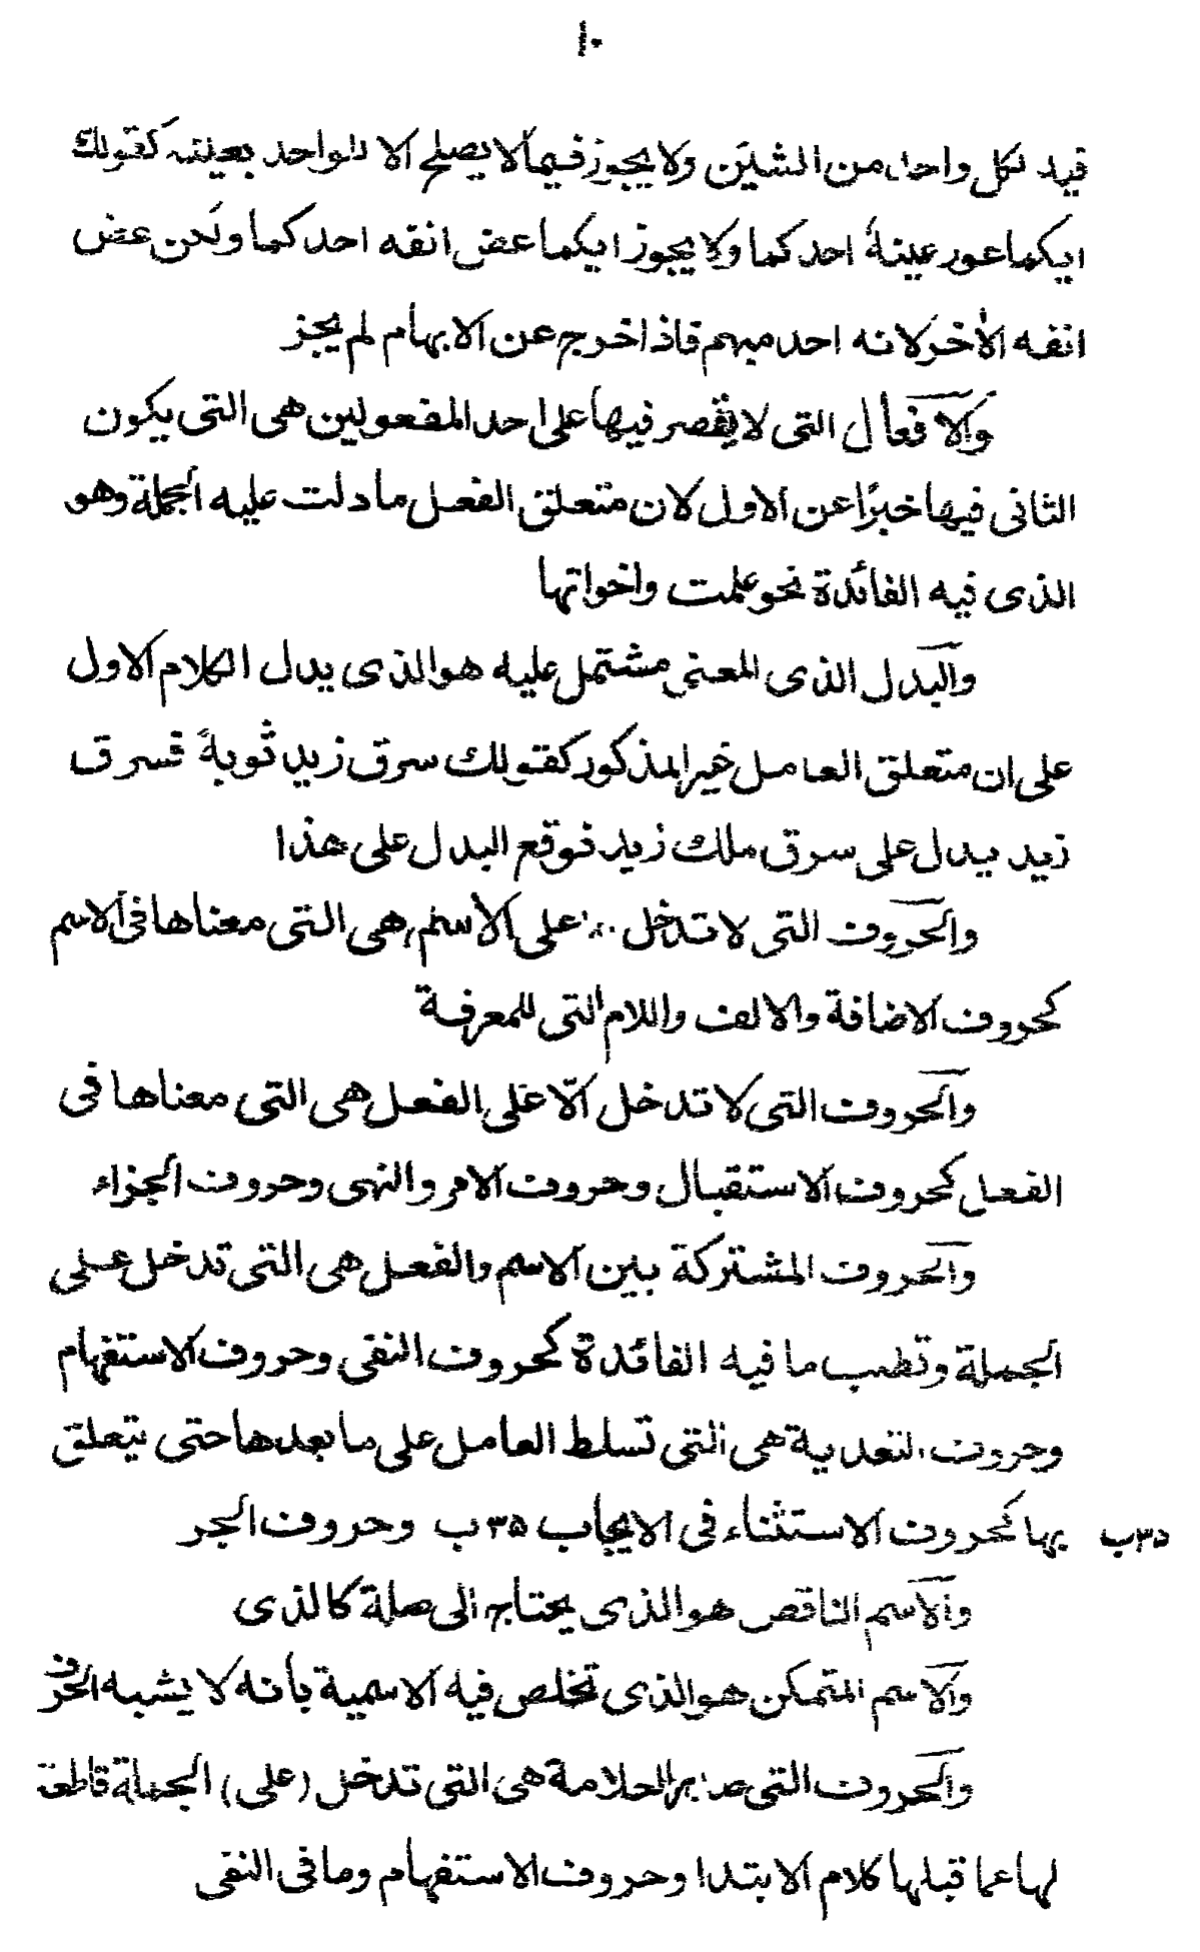 ١٠
فيه لكل واحد من الشيئين ولا يجوز فيما لا يصلح الا للواحد بعينه كقولك
ايكما عور عينهُ احدكما ولا يجوز ايكما عض انفه احدكما ولكن عض
انفه الاٰخر لانه احد مبهم فاذا خرج عن الابهام لم يجز
والافعال التى لا يقصر فيها على احد المفعولين هى التى يكون
الثانى فيها خبرًا عن الاول لان متعلق الفعل ما دلت عليه الجملة وهو
الذى فيه الفائدة نحو علمت واخواتها
والبدل الذى المعنى مشتمل عليه هو الذى يدل الكلام الاول
على ان متعلق العامل غير المذكور كقولك سرق زيد ثوبهُ فسرق
زيد يدل على سرق ملك زيد فوقع البدل على هذا
والحروف التى لا تدخل على الاسم هى التى معناها فى الاسم
كحروف الاضافة والالف واللام التى للمعرفة
والحروف التى لا تدخل الّا على الفعل هى التى معناها فى
الفعل كحروف الاستقبال وحروف الامر والنهى وحروف الجزاء
والحروف المشتركة بين الاسم والفعل هى التى تدخل على
الجملة وتطلب ما فيه الفائدة كحروف النفى وحروف الاستفهام
وحروف التعدية هى التى تسلط العامل على ما بعدها حتى يتعلق
بها كحروف الاستثناء فى الايجاب ٣٥ب وحروف الجر
٣٥ب
والاسم الناقص هو الذى يحتاج الى صلة كالذى
والاسم المتمكن هو الذى تخلص فيه الاسمية بانه لا يشبه الحرف
والحروف التى هى التى تدخل (على) الجملة قاطعة
لها عما قبلها كلام الابتدا وحروف الاستفهام وما فى النفى